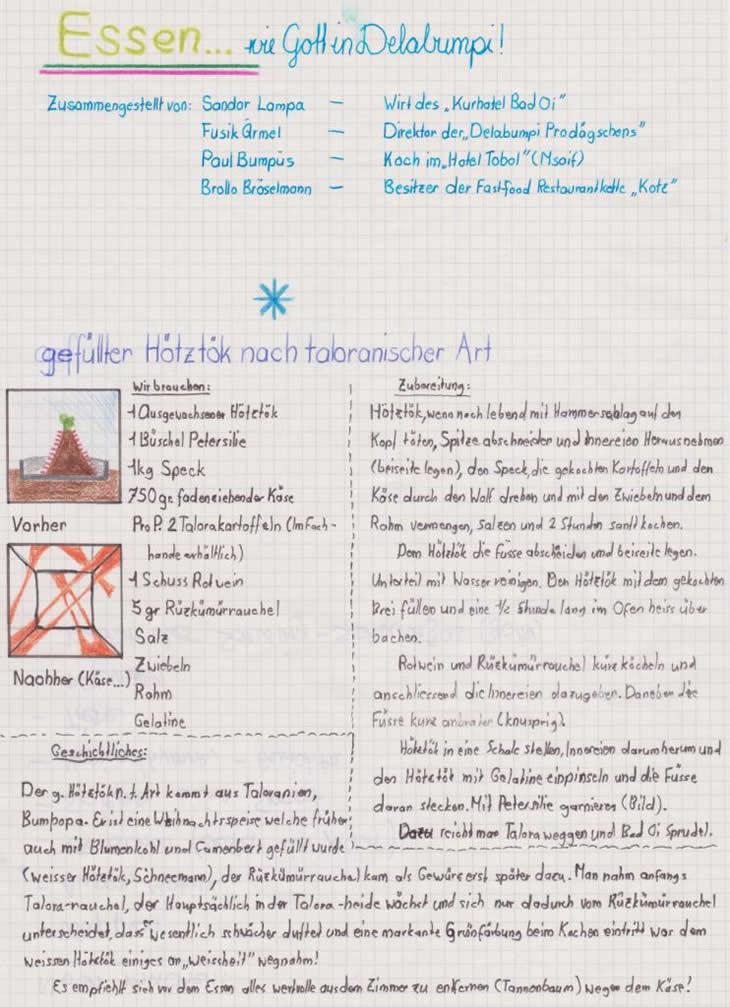 Essen... wie Gott in Delabumpi!
Zusammengestellt von: Sandor Lampa – Wirt des „Kurhotel Bad Oi“
Fusik Ärmel – Direktor der „Delabumpi Prodögschens“
Paul Bumpüs – Koch im „Hotel Tobol“ (Msaif)
Brollo Bröselmann – Besitzer der Fastfood Restaurantkette „Kotz“
gefüllter Hötztök nach taloranischer Art
Wir brauchen:
1 Ausgewachsener Hötztök
1 Büschel Petersilie
1kg Speck
750 gr fadenziehender Käse
Pro P. 2 Talorakartoffeln (Im Fach-
hande erhältlich)
1 Schuss Rotwein
5 gr Rüzkümürrauchel
Salz
Zwiebeln
Rahm
Gelatine
Vorher
Nachher (Käse...)
Zubereitung:
Hötztök, wenn noch lebend mit Hammerschlag auf den
Kopf töten, Spitze abschneiden und Innereien Herausnehmen
(beiseite legen), den Speck, die gekochten Kartoffeln und den
Käse durch den Wolf drehen und mit den Zwiebeln und dem
Rahm vermengen, Salzen und 2 Stunden sanft kochen.
Dem Hötztök die Füsse abscheiden und beiseite legen.
Unterteil mit Wasser reinigen. Den Hötztök mit dem gekochten
Brei füllen und eine 1/2 Stunde lang im Ofen heiss über
bachen.
Rotwein und Rüzkümürrauchel kurz köcheln und
anschliessend die Innereien dazugeben. Daneben die
Füsse kurz anbraten (knusprig).
Hötztök in eine Schale stellen, Innereien darumherum und
den Hötztök mit Gelatine einpinseln und die Füsse
daran stecken. Mit Petersilie garnieren (Bild).
Dazu reicht man Talora weggen und Bad Oi Sprudel.
Geschichtliches:
Der g. Hötztök n. t. Art kommt aus Taloranien,
Bumpopa. Er ist eine Weihnachtsspeise welche früher
auch mit Blumenkohl und Camenbert gefüllt wurde
(weisser Hötztök, Schneemann), der Rüzkümürrauchel kam als Gewürz erst später dazu. Man nahm anfangs
Talora-rauchel, der Hauptsächlich in der Talora-heide wächst und sich nur dadurch vom Rüzkümürrauchel
unterscheidet, dass er wesentlich schwächer duftet und eine markante Grünfärbung beim Kochen eintritt was dem
weissen Hötztök einiges an „weissheit“ wegnahm!
Es empfiehlt sich vor dem Essen alles wertvolle aus dem Zimmer zu entfernen (Tannenbaum) wegen dem Käse!